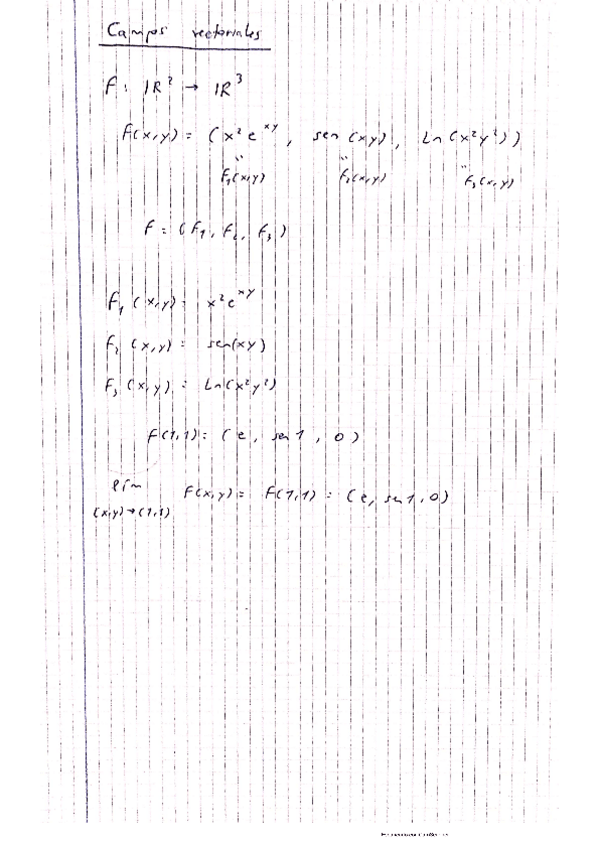 Campos vectoriales
F: IR² → IR³
F(x,y) = (x²e^xy, sen(xy), Ln(x²y²))
F₁(x,y) F₂(x,y) F₃(x,y)
F = (F₁, F₂, F₃)
F₁(x,y) = x²e^xy
F₂(x,y) = sen(xy)
F₃(x,y) = Ln(x²y²)
F(1,1) = (e, sen1, 0)
lím F(x,y) = F(1,1) = (e, sen1, 0)
(x,y)→(1,1)